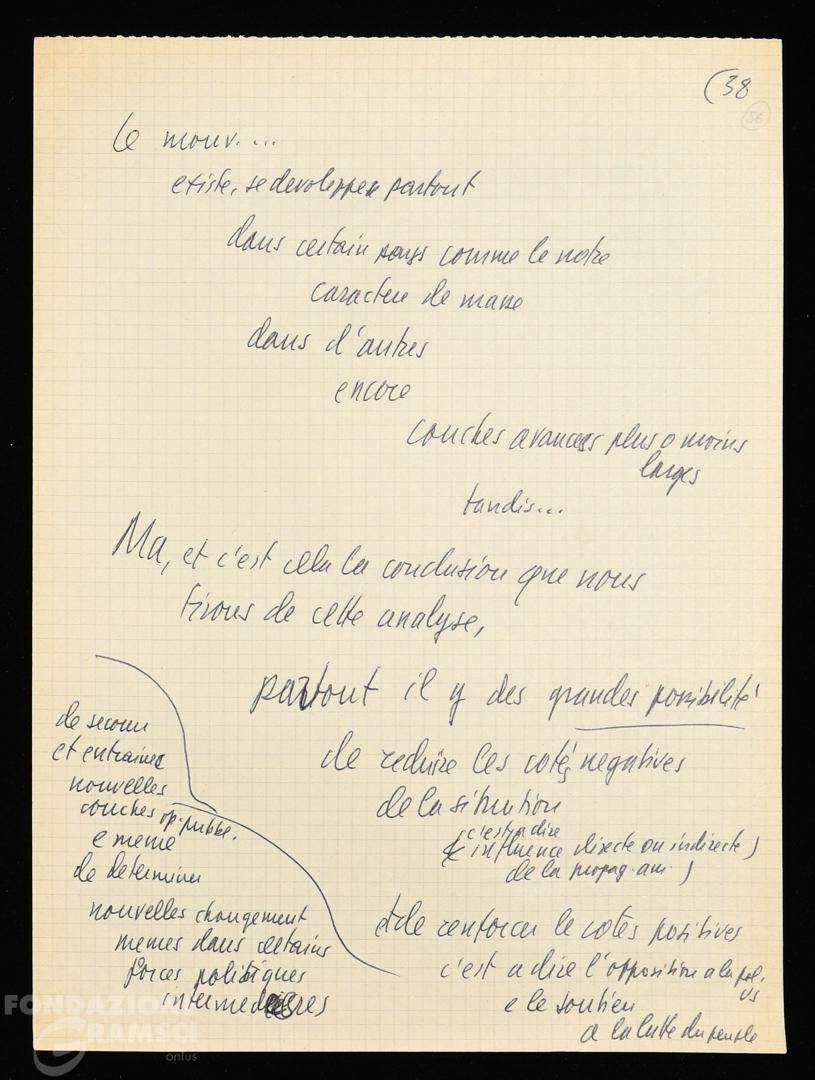 (38
56
Le mouv. ...
existe, se developpe partout
dans certain pays comme le notre
caractere de masse
dans d'autres
encore
couches avancees plus o moins
larges
tandis...
Ma, et c'est cela la conclusion que nous
tirons de cette analyse,
partout il y des grandes possibilité
de reduire les cotés negatives
de la situation
(c'est a dire
influence directe ou indirecte)
de la propag. am.)
et de renforcer le cotes positives
c'est a dire l'opposition a la pol.
US
e le soutien
a la lutte du peuple
de secouer
et entrainer
nouvelles
couches op. pubbl.
e meme
de determiner
nouvelles changement
memes dans certains
forces politiques
intermediaires
FONDAZIONE
GRAMSCI
onlus